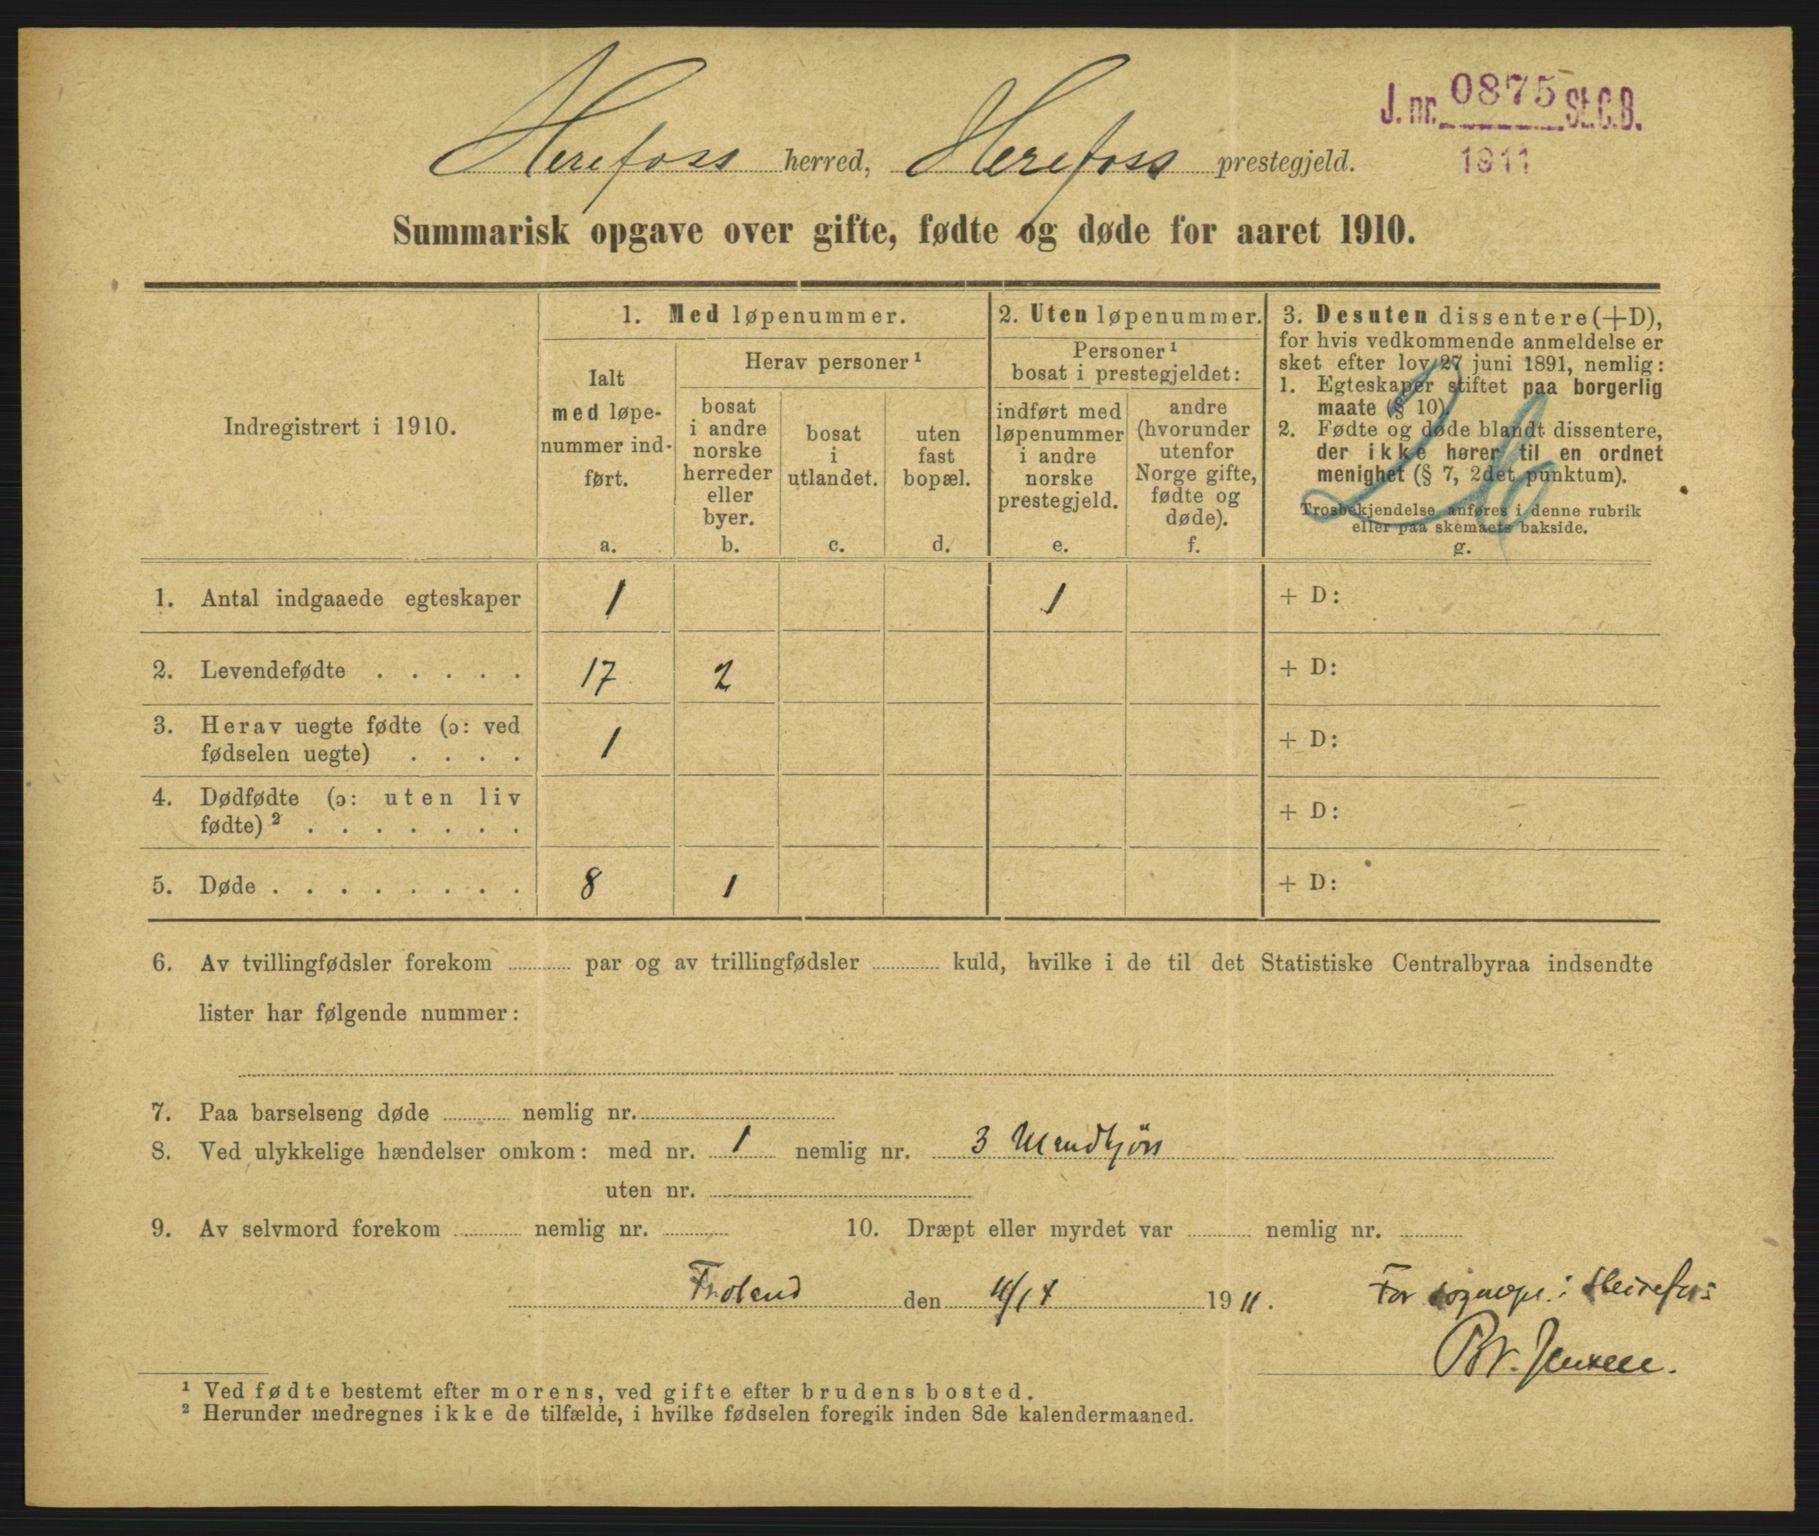 J. nr. 0875 St.C.B.
1911
Herefoss herred, Herefoss prestegjeld.
Summarisk opgave over gifte, fødte og døde for aaret 1910.
Indregistrert i 1910.
1. Med løpenummer.
Ialt
med løpe-
nummer ind-
ført.
a.
Herav personer ¹
bosat
i andre
norske
herreder
eller
byer.
b.
bosat
i
utlandet.
c.
uten
fast
bopæl.
d.
2. Uten løpenummer.
Personer ¹
bosat i prestegjeldet:
indført med
løpenummer
i andre
norske
prestegjeld.
e.
andre
(hvorunder
utenfor
Norge gifte,
fødte og
døde).
f.
3. Desuten dissentere (+D),
for hvis vedkommende anmeldelse er
sket efter lov 27 juni 1891, nemlig:
1. Egteskaper stiftet paa borgerlig
maate (§ 10).
2. Fødte og døde blandt dissentere,
der ikke hører til en ordnet
menighet (§ 7, 2det punktum).
Trosbekjendelse anføres i denne rubrik
eller paa skemaets bakside.
g.
1. Antal indgaaede egteskaper 1 1 + D:
2. Levendefødte . . . . . 17 2 + D:
3. Herav uegte fødte (ɔ: ved
fødselen uegte) . . . . 1 + D:
4. Dødfødte (ɔ: uten liv
fødte) ² . . . . . . . + D:
5. Døde . . . . . . . . 8 1 + D:
6. Av tvillingfødsler forekom ............ par og av trillingfødsler ............ kuld, hvilke i de til det Statistiske Centralbyraa indsendte
lister har følgende nummer:
7. Paa barselseng døde ............ nemlig nr.
8. Ved ulykkelige hændelser omkom: med nr. 1 nemlig nr. 3 Mandkjön
uten nr.
9. Av selvmord forekom ............ nemlig nr. ............ 10. Dræpt eller myrdet var ............ nemlig nr. ............
Froland den 1911.
For sognepr. i Heirefos
Br. Jensen.
¹ Ved fødte bestemt efter morens, ved gifte efter brudens bosted.
² Herunder medregnes ikke de tilfælde, i hvilke fødselen foregik inden 8de kalendermaaned.